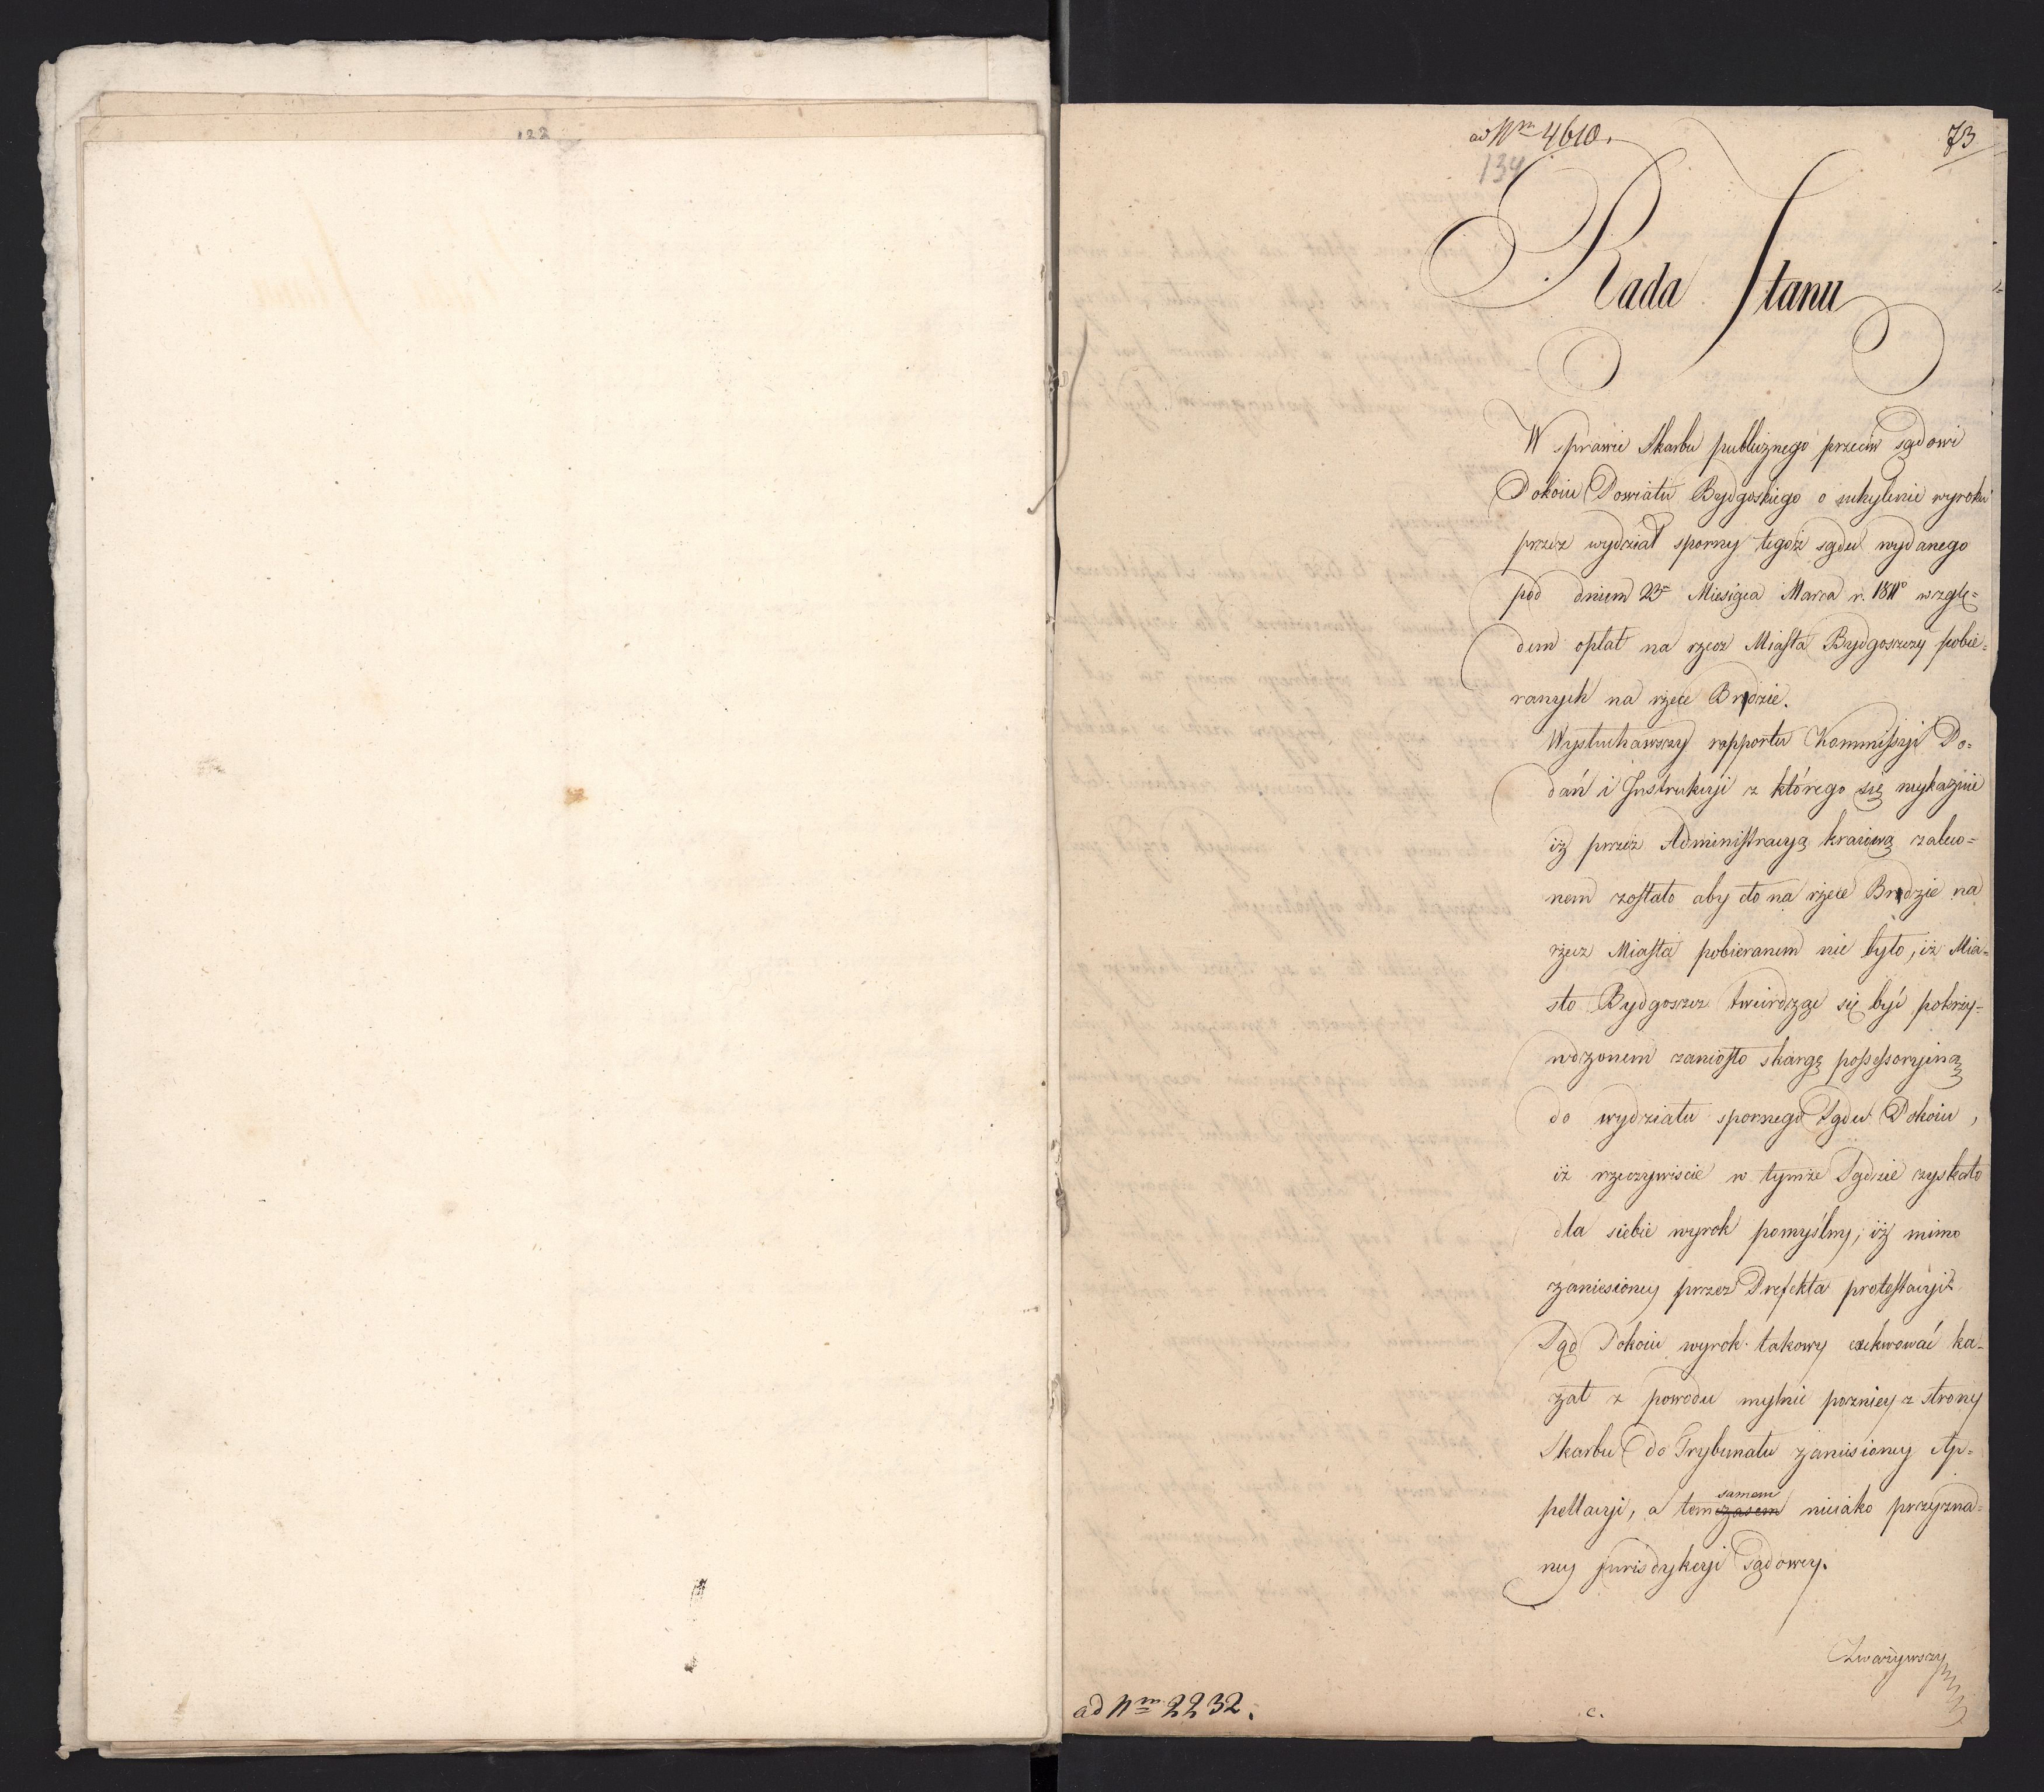 122
ad Nm 4610.
134
73
Rada Stanu
W sprawie Skarbu publicznego przeciw sądowi
Pokoiu Powiatu Bydgoskiego o uchylenie wyroku
przez wydział sporny tegoż sądu wydanego
pod dniem 23m Miesiąca Marca r. 1811o wzglę=
dem opłat na rzecz Miasta Bydgoszczy pobie=
ranych na rzece Brdzie.
Wysłuchawszy rapportu Kommissyi Po=
dań i Instrukcyi z którego się wykazuie
iż przez Administracyą kraiową zaleco=
nem zostało aby cło na rzece Brdzie na
rzecz Miasta pobieranem nie było, iż Mia=
sto Bydgoszcz twierdząc się być pokrzy=
wdzonem zaniosło skargę possessoryiną
do wydziału spornego Sądu Pokoiu,
iż rzeczywiscie w tymże Sądzie zyskało
dla siebie wyrok pomyślny; iż mimo
zaniesioney przez Prefekta protestacyi
Sąd Pokoiu wyrok takowy exekwować ka=
zał z powodu mylnie pozniey z strony
Skarbu do Trybunału zaniesioney Ap=
pellacyi, a tem samem nieiako przyzna=
ney Jurisdykcyi Sądowey.
Zważywszy
ad Nm 2232.
c.